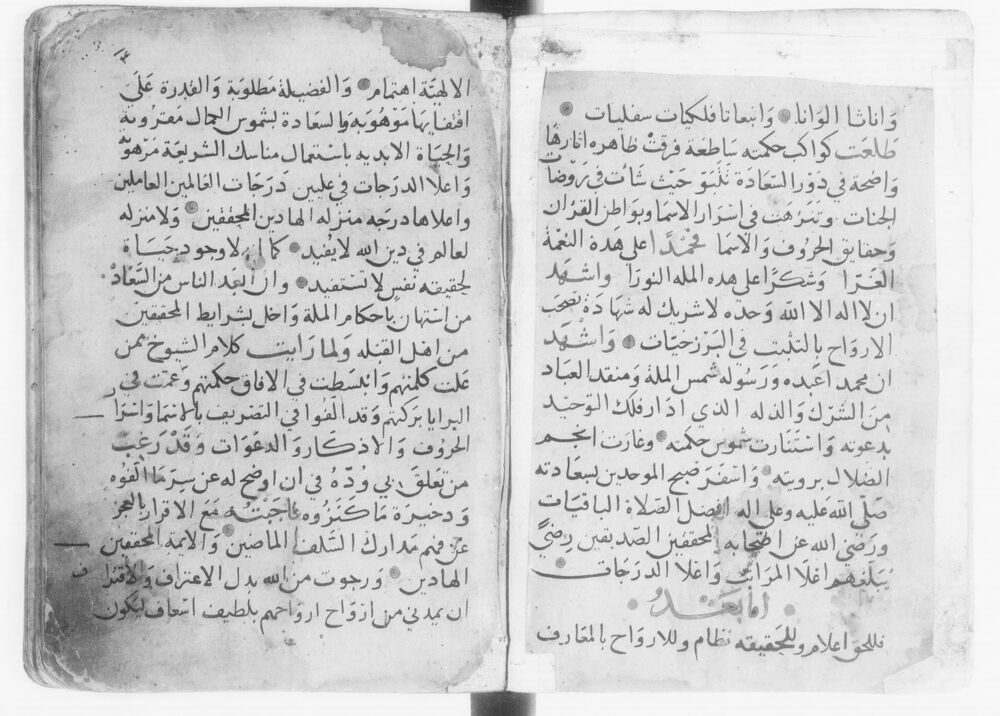 واناثا الوانا وانبعاثا فلكيات سفليات
طلعت كواكب حكمته ساطعة فرقت ظاهره اثارها
واضحة في دور السعادة تتبو حيث شات في روضات
الجنات وتنزهت في اسرار الاسما وبواطن القران
وحقايق الحروف والاسما فحمدا على هذة النعمة
الغرا وشكرا على هده المله النورا واشهد
ان لا اله الا الله وحده لا شريك له شهادة تصحب
الارواح بالتلبت في البرزخيات واشهد
ان محمدا عبده ورسوله شمس الملة ومنقد العباد
من الشرك والذله الذي ادار فلك التوحيد
بدعوته واستنارت شموس حكمته وغارت انجم
الضلال برويته واسفر صبح الموحدين بسعادته
صلى الله عليه وعلى اله افضل الصلاة الباقيات
ورضي الله عن اصحابه المحققين الصديقين رضي
يبلغهم اعلا المراتب واعلا الدرجات
اما بعد
فللحق اعلام وللحقيقه نظام وللارواح بالمعارف
١٣
الالهية اهتمام والفضيلة مطلوبة والقدرة على
اقتفايها موهوبه والسعادة بشموس الجمال مقرونة
والحياة الابديه باستعمال مناسك الشريعة مرهوبة
واعلا الدرجات في عليين درجات العالمين العاملين
واعلاها درجه منزله الهادين المحققين ولا منزله
لعالم في دين الله لا يفيد كما انه لا وجود حياة
لحقيقه نفس لا تستفيد وان ابعد الناس من السعاد
من استهان باحكام الملة واخل بشرايط المحققين
من اهل القبله ولما رايت كلام الشيوخ ممن
علت كلمتهم وانبسطت في الافاق حكمتهم وعمت في
البرايا بركتهم وقد الفوا في التصريف بالاسما واسرار
الحروف والاذكار والدعوات وقد رغب
من تعلق بي ودة في ان اوضح له عن سر ما القوه
ودخيرة ما كنزوه فاجبته مع الاقرار بالعجز
عن فهم مدارك السلف الماضين والايمة المحققين
الهادين ورجوت من الله بدل الاعتراف والاقتراف
ان يمدني من ازواح ارواحهم بلطيف اسعاف ليكون